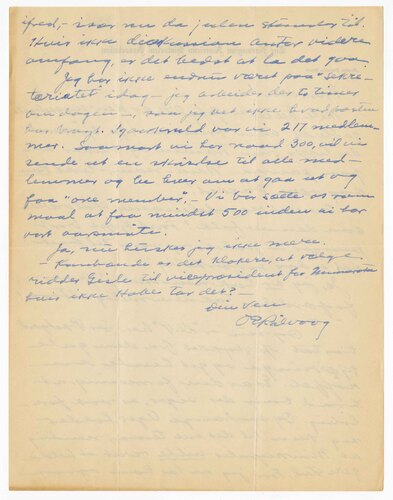 fred, — især nu da julen stunder til.
Hvis ikke diskussion antar videre
omfang, er det bedst at la det gaa.
Jeg har ikke endnu været paa "Sekre-
tariatet" idag — jeg arbeider der to timer
om dagen —, saa jeg vet ikke hvad posten
har bragt. Igaarkveld var vi 217 medlem-
mer. Saasnart vi har naad 300, vil vi
sende ut en skrivelse til alle med-
lemmer og be hver om at gaa ut og
faa "one member". — Vi bør sætte os som
maal at faa mindst 500 inden vi har
vort aarsmøte.
Ja, nu husker jeg ikke mere.
Rambande er det klokere, at vælge
Gisle til vicepresident for Minnesota
hvis ikke Hobe tar det? —
Din ven
OE Rølvaag